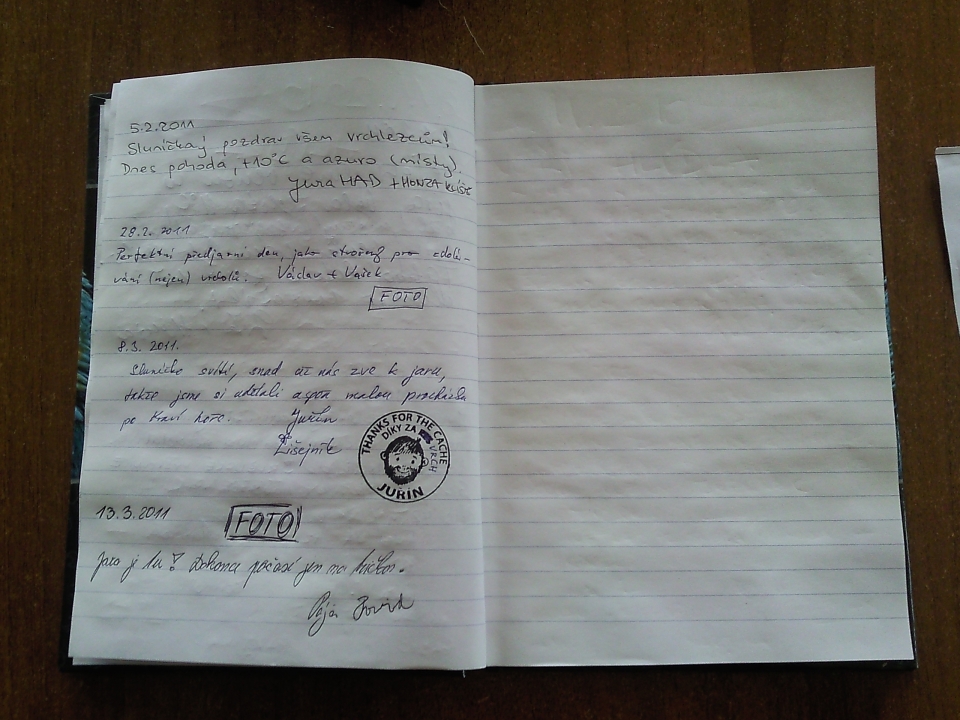 5.2.2011
Sluníčkový pozdrav všem vrchlezcům!
Dnes pohoda, +10°C a azuro (místy).
Jura HAD + HONZA
28.2. 2011
Perfektní předjarní den, jako stvořený pro zdolá-
vání (nejen) vrcholů. Václav + Vašek
FOTO
8.3. 2011.
Sluníčko svítí, snad už nás zve k jaru,
takže jsme si udělali aspoň malou procházku
po Kraví hoře. Juřín
Lišejník
THANKS FOR THE CACHE
DÍKY ZA
VRCH
JUŘÍN
13.3.2011 FOTO
Jaro je tu! Dokonce počasí jen na